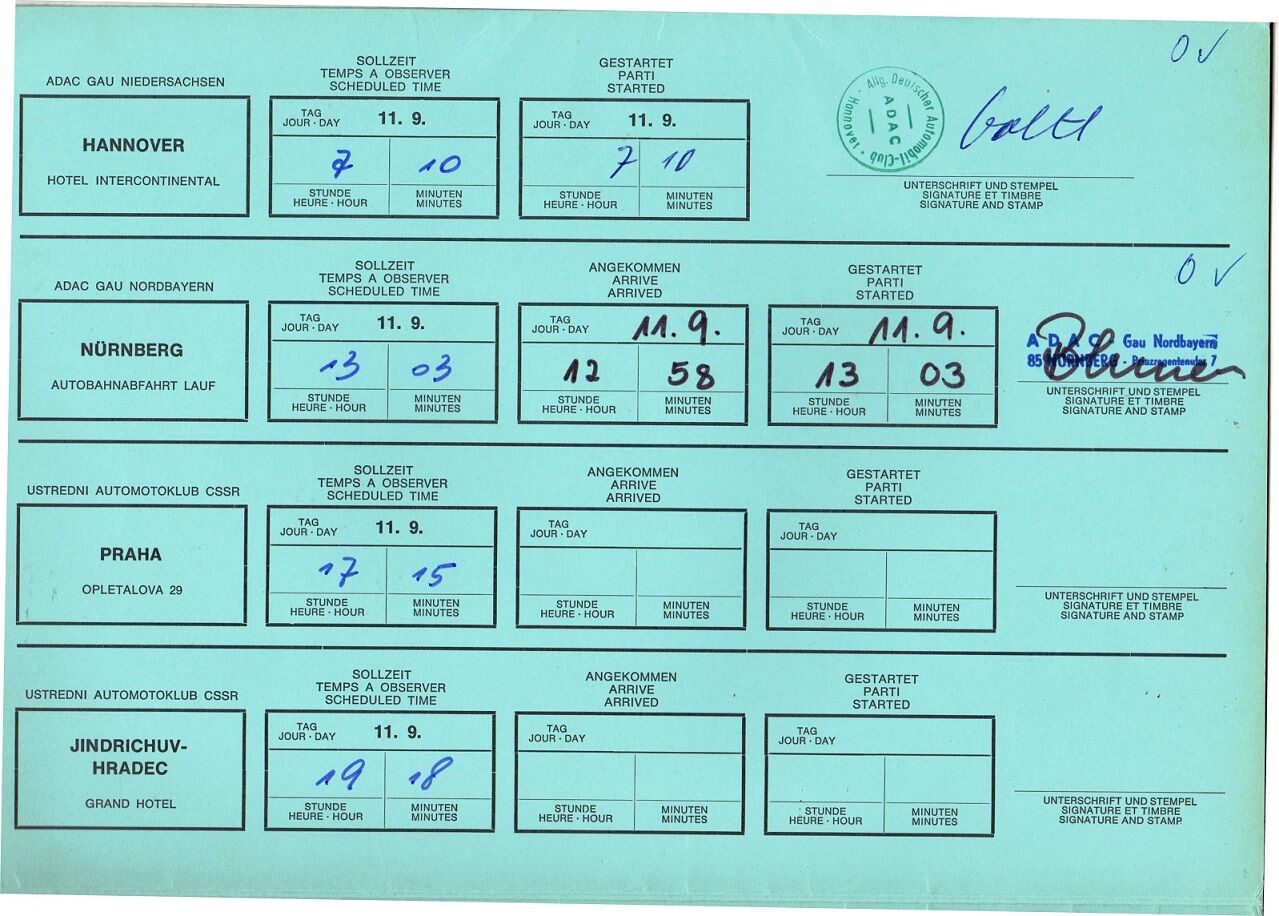 0 ✓
ADAC GAU NIEDERSACHSEN
HANNOVER
HOTEL INTERCONTINENTAL
SOLLZEIT
TEMPS A OBSERVER
SCHEDULED TIME
TAG
JOUR · DAY 11. 9.
7 10
STUNDE
HEURE · HOUR
MINUTEN
MINUTES
GESTARTET
PARTI
STARTED
TAG
JOUR · DAY 11. 9.
7 10
STUNDE
HEURE · HOUR
MINUTEN
MINUTES
Allg. Deutscher Automobil-Club · Hannover ·
ADAC
UNTERSCHRIFT UND STEMPEL
SIGNATURE ET TIMBRE
SIGNATURE AND STAMP
0 ✓
ADAC GAU NORDBAYERN
NÜRNBERG
AUTOBAHNABFAHRT LAUF
SOLLZEIT
TEMPS A OBSERVER
SCHEDULED TIME
TAG
JOUR · DAY 11. 9.
13 03
STUNDE
HEURE · HOUR
MINUTEN
MINUTES
ANGEKOMMEN
ARRIVE
ARRIVED
TAG
JOUR · DAY 11. 9.
12 58
STUNDE
HEURE · HOUR
MINUTEN
MINUTES
GESTARTET
PARTI
STARTED
TAG
JOUR · DAY 11. 9.
13 03
STUNDE
HEURE · HOUR
MINUTEN
MINUTES
ADAC Gau Nordbayern
85 NÜRNBERG - Prinzregentenufer 7
UNTERSCHRIFT UND STEMPEL
SIGNATURE ET TIMBRE
SIGNATURE AND STAMP
USTREDNI AUTOMOTOKLUB CSSR
PRAHA
OPLETALOVA 29
SOLLZEIT
TEMPS A OBSERVER
SCHEDULED TIME
TAG
JOUR · DAY 11. 9.
17 15
STUNDE
HEURE · HOUR
MINUTEN
MINUTES
ANGEKOMMEN
ARRIVE
ARRIVED
TAG
JOUR · DAY
STUNDE
HEURE · HOUR
MINUTEN
MINUTES
GESTARTET
PARTI
STARTED
TAG
JOUR · DAY
STUNDE
HEURE · HOUR
MINUTEN
MINUTES
UNTERSCHRIFT UND STEMPEL
SIGNATURE ET TIMBRE
SIGNATURE AND STAMP
USTREDNI AUTOMOTOKLUB CSSR
JINDRICHUV-
HRADEC
GRAND HOTEL
SOLLZEIT
TEMPS A OBSERVER
SCHEDULED TIME
TAG
JOUR · DAY 11. 9.
19 18
STUNDE
HEURE · HOUR
MINUTEN
MINUTES
ANGEKOMMEN
ARRIVE
ARRIVED
TAG
JOUR · DAY
STUNDE
HEURE · HOUR
MINUTEN
MINUTES
GESTARTET
PARTI
STARTED
TAG
JOUR · DAY
STUNDE
HEURE · HOUR
MINUTEN
MINUTES
UNTERSCHRIFT UND STEMPEL
SIGNATURE ET TIMBRE
SIGNATURE AND STAMP